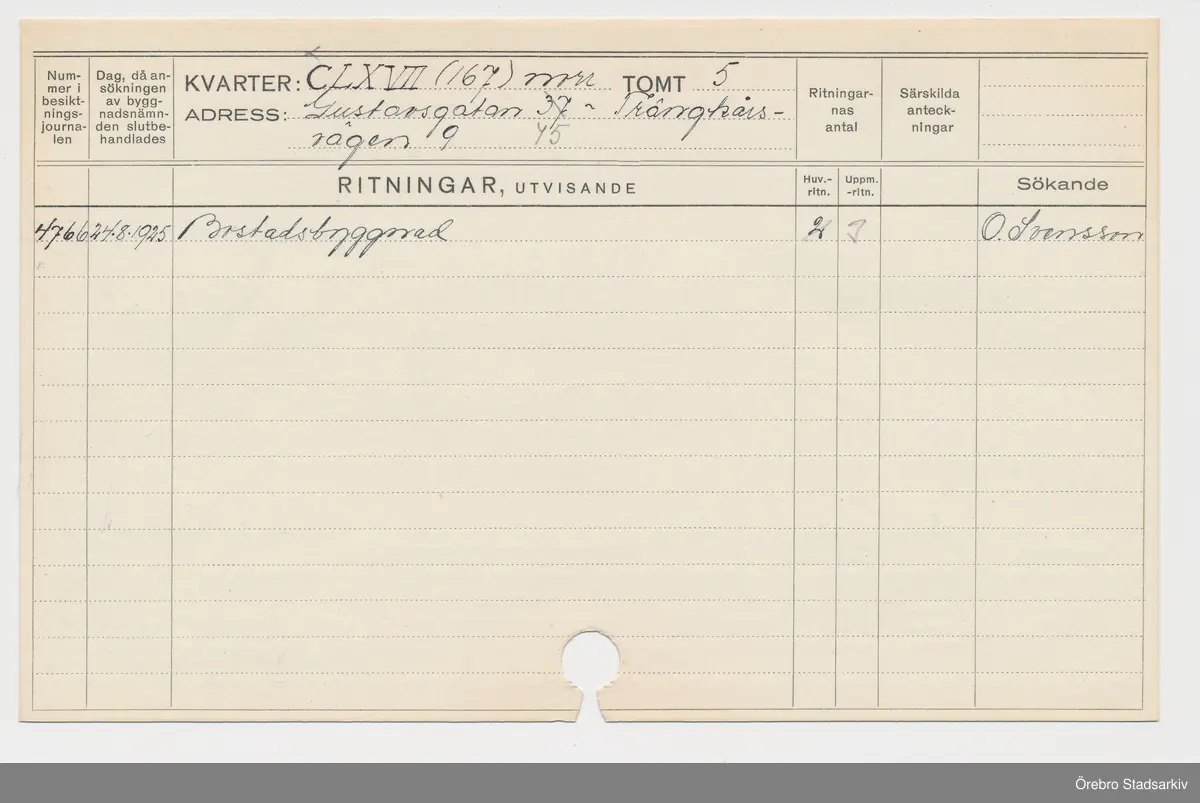 Num-
mer i
besikt-
nings-
journa-
len
Dag, då an-
sökningen
av bygg-
nadsnämn-
den slutbe-
handlades
KVARTER: CLXVII (167) norr TOMT 5
ADRESS: Gustavsgatan 37 - Trängkårs-
vägen 9 45
Ritningar-
nas
antal
Särskilda
anteck-
ningar
RITNINGAR, UTVISANDE
Huv.-
ritn.
Uppm.
-ritn.
Sökande
4766 24.8.1925 Bostadsbyggnad 2 3 O. Svensson
Örebro Stadsarkiv